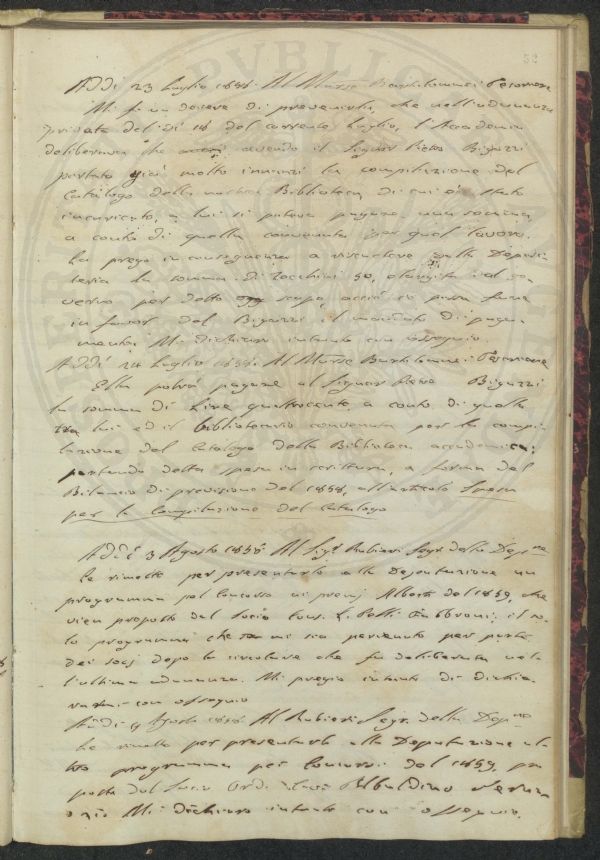 52
Addì 23 Luglio 1858. Al Marse Bartolommei Tesoriere
Mi fo un dovere di prevenirla, che nell'adunanza
privata del dì 18 del corrente Luglio, l'Accademia
deliberava che avendo il Signor Pietro Bigazzi
portato già molto innanzi la compilazione del
Catalogo della nostra Biblioteca, di cui è stato
incaricato, a lui si poteva pagare una somma
a conto di quella convenuta per quel lavoro.
La prego in conseguenza a riscuotere dalla Deposi
teria la somma di Zecchini 50, elargita dal Go
verno per detto scopo acciò io possa fare
in favor del Bigazzi il mandato di paga
mento. Mi dichiaro intanto con ossequio.
Addì 24 Luglio 1858. Al Marse Bartolommei Tesoriere
Ella potrà pagare al Signor Pietro Bigazzi
la somma di Lire quattrocento a conto di quella
tra lui ed il bibliotecario convenuta per la compi
lazione del Catalogo della Biblioteca accademica;
portando detta spesa in scrittura, a forma del
Bilancio di previsione del 1858, all'articolo Spesa
per la Compilazione del Catalogo
Addì 3 Agosto 1858 Al Sigr Rubieri Segr. della Depne
Le rimetto per presentarlo alla Deputazione un
programma pel Concorso ai premj Alberti del 1859, che
vien proposto dal Socio Cons. L. Poth Fabbroni; il so
lo programma che mi sia pervenuto per parte
dei socj dopo la circolare che fu deliberata nel
l'ultima adunanza. Mi pregio intanto di dichia
rarmi con ossequio
Addì 9 Agosto 1858 Al Rubieri Segr. della Depne
Le rimetto per presentarlo alla Deputazione al
tro programma pei Concorsi del 1859 pro
posto dal Socio Ord.
Mi dichiaro intanto con ossequio.